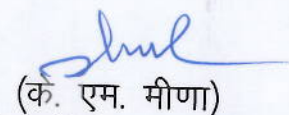 (के. एम. मीणा)